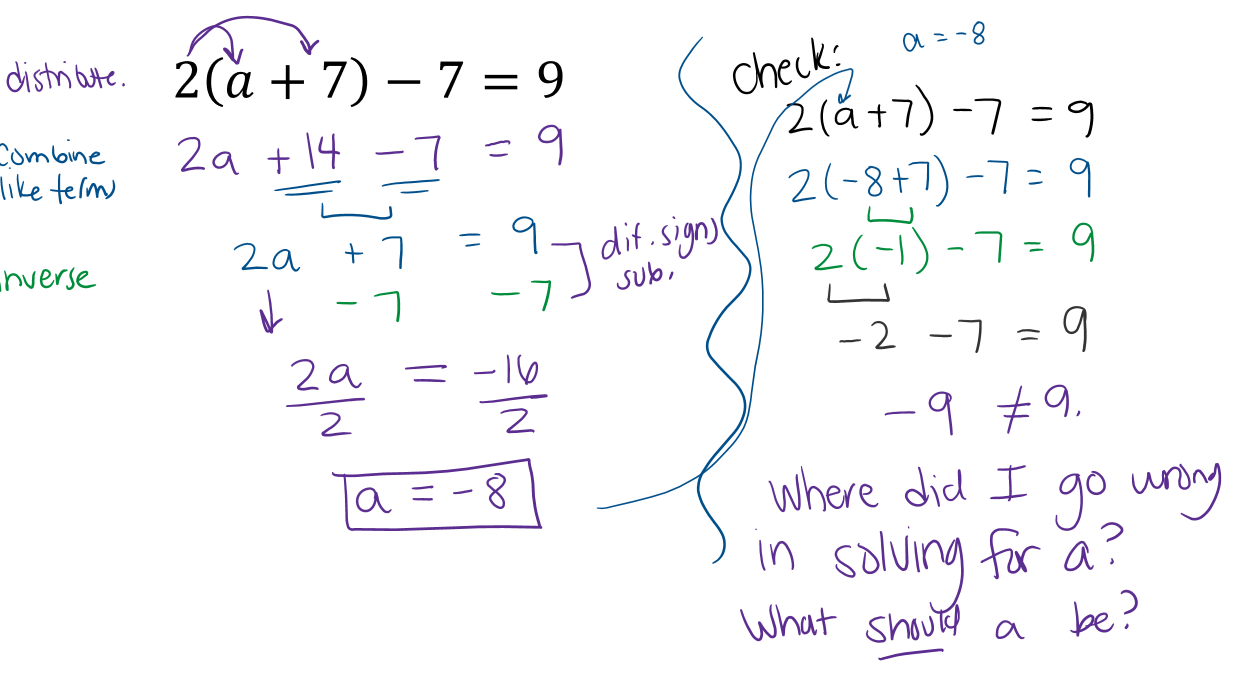 distribute.
2(a + 7) − 7 = 9
2a + 14 − 7 = 9
Combine
like terms
2a + 7 = 9
inverse
− 7 − 7
dif. signs
sub.
2a = −16
2 2
a = −8
check:
a = −8
2(a+7) −7 = 9
2(−8+7) −7 = 9
2(−1) − 7 = 9
−2 −7 = 9
−9 ≠ 9.
Where did I go wrong
in solving for a?
What should a be?